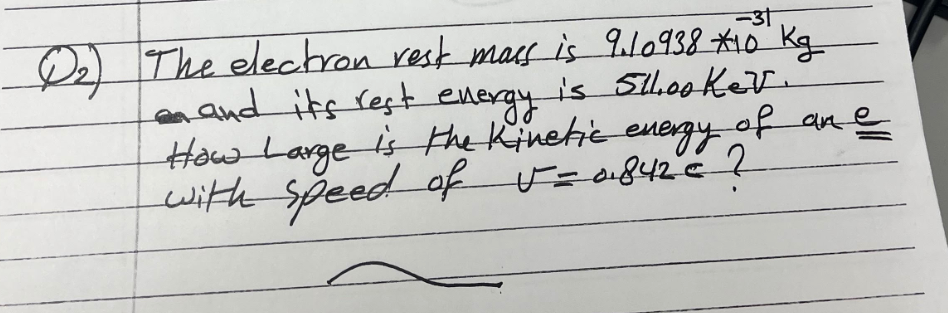 Q2) The electron rest mass is 9.10938 *10^-31 Kg
and its rest energy is 511.00 KeV.
How Large is the Kinetic energy of an e
with speed of v = 0.842 c ?